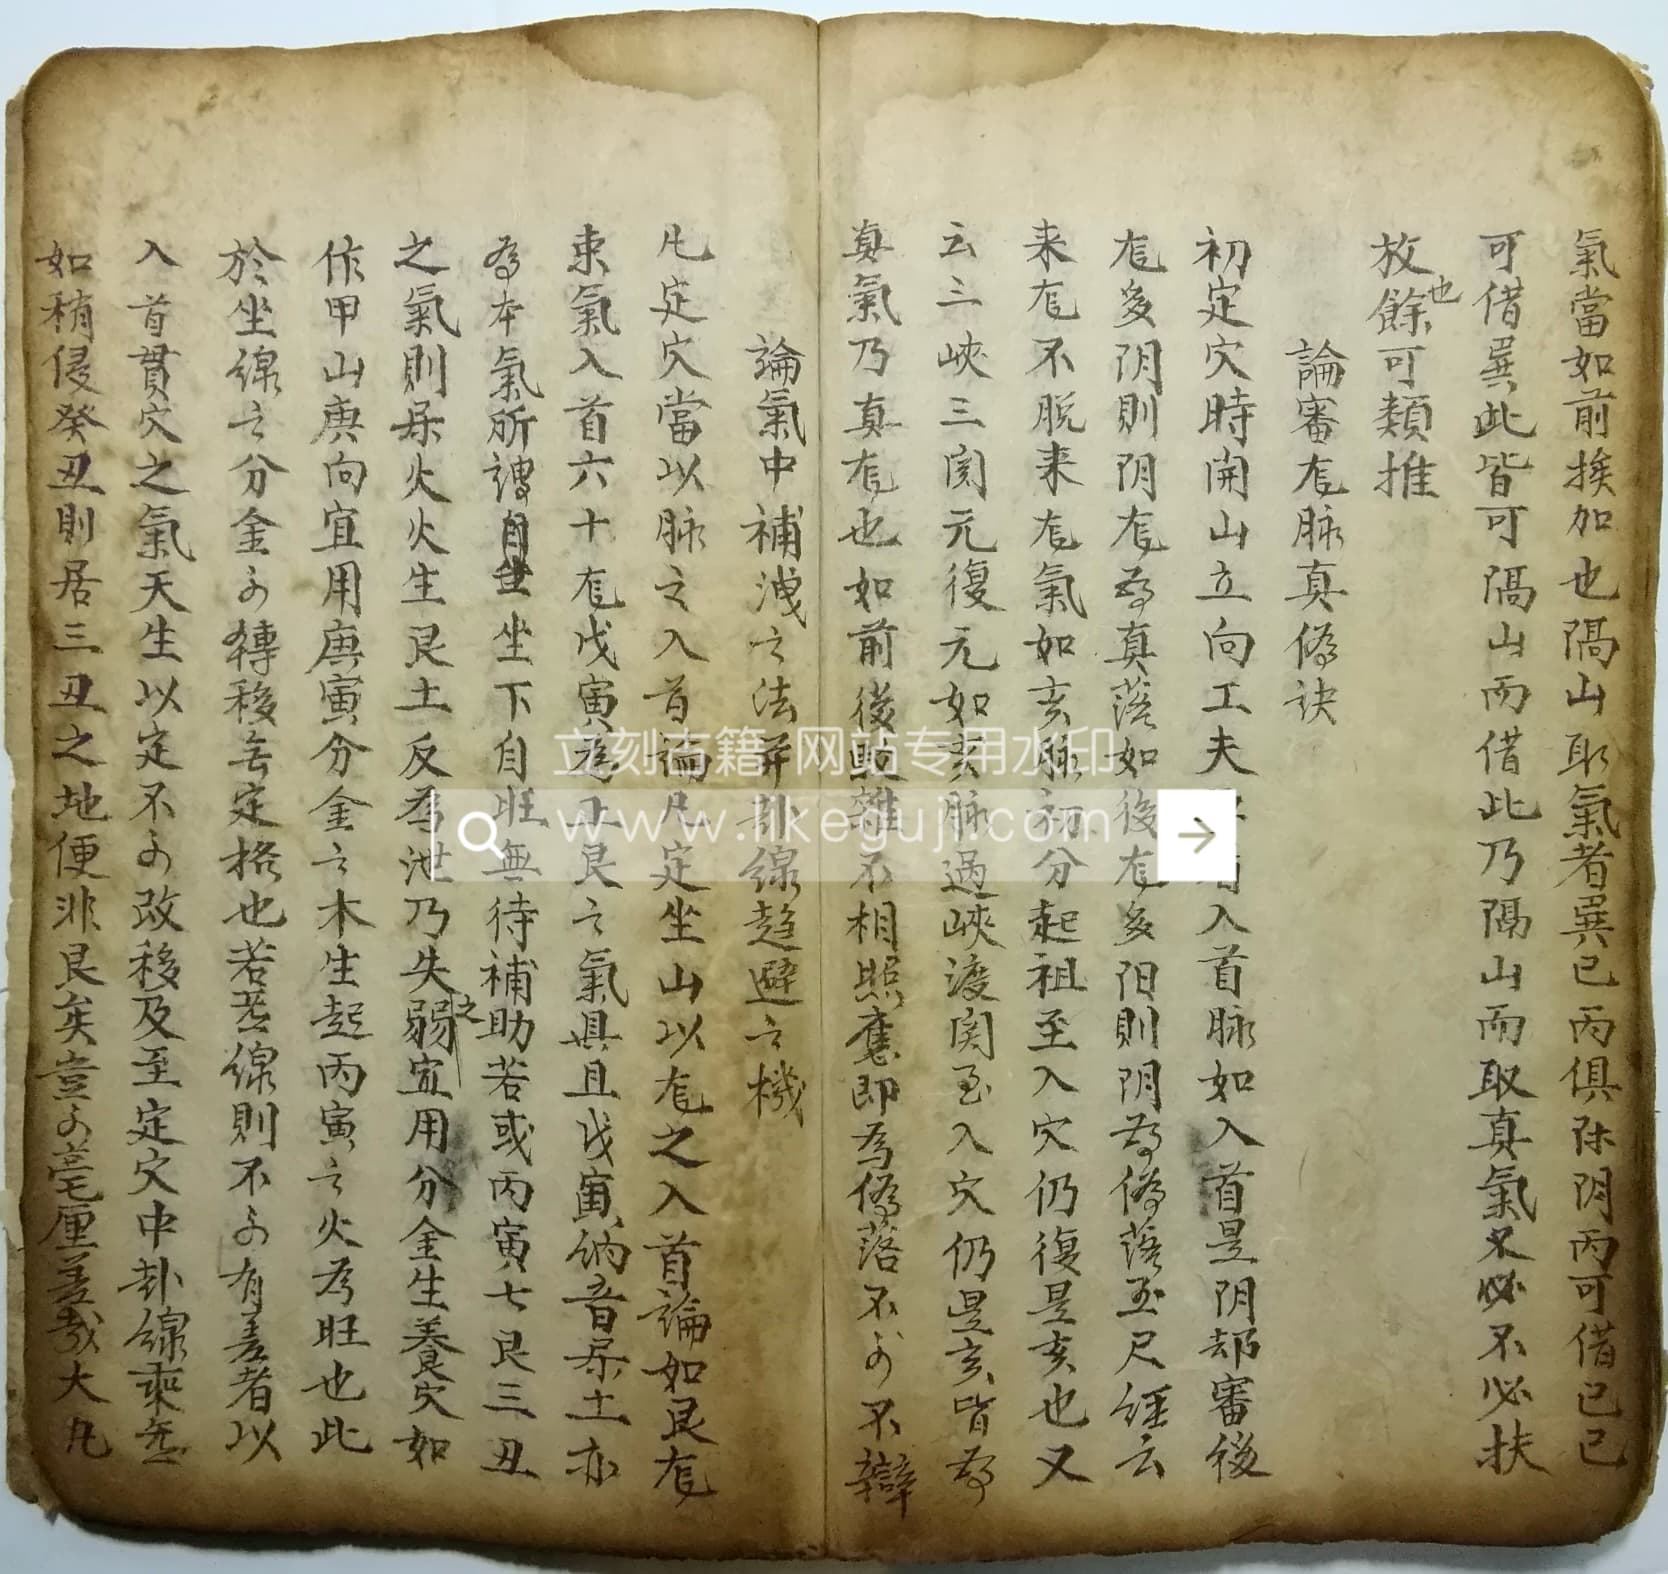 氣當如前挨加也隔山取氣者巽巳丙俱陎阴丙可借巳巳
可借巽此皆可隔山而借此乃隔山而取真氣又必不必扶
放餘也可類推
論審龙脉真偽訣
初定穴時開山立向工夫入首脉如入首是阴却審後
龙多阴則阴龙為真落如後龙多阳則阴為偽落至尺經云
来龙不脱来龙氣如亥脉初分起祖至入穴仍復是亥也又
云三峽三関元復元如亥脉過峽渡関至入穴仍是亥皆為
真氣乃真龙也如前後駁雜不相照應即為偽落不可不辯
論氣中補洩之法并卦線趋避之機
凡定穴當以脉之入首論凡定坐山以龙之入首論如艮龙
束氣入首六十龙戊寅為正艮之氣具且戊寅納音屬土亦
為本氣所謂自坐坐下自旺無待補助若或丙寅七艮三丑
之氣則屬火火生艮土反為泄乃失弱之宜用分金生養穴如
作甲山庚向宜用庚寅分金之木生起丙寅之火為旺也此
於坐線之分金可轉移無定格也若卦線則不可有差者以
入首貫穴之氣天生以定不可改移及至定穴中卦線乘無
如稍侵癸丑則居三丑之地便非艮矣豈可毫厘差哉大凡
立刻古籍 网站专用水印
www.lkeguji.com